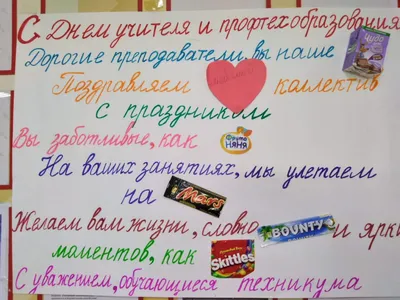 С Днем учителя и профтехобразования
Дорогие преподаватели, вы наше Чудо
Поздравляем коллектив
с праздником
Вы заботливые, как Фруто Няня
На ваших занятиях, мы улетаем
на Mars
Желаем вам жизни, словно BOUNTY и ярки
моментов, как Skittles
С уважением, обучающиеся техникума